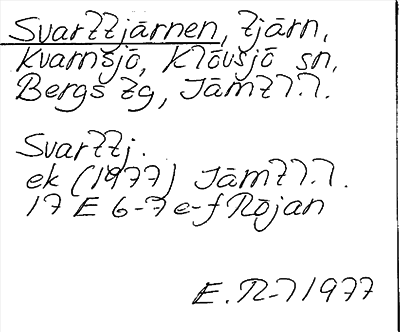 Svarttjärnen, tjärn,
Kvarnsjö, Klövsjö sn,
Bergs tg, Jämtl.l.
Svarttj.
ek (1977) Jämtl.l.
17 E 6-7 e-f Röjan
E.R-l 1977